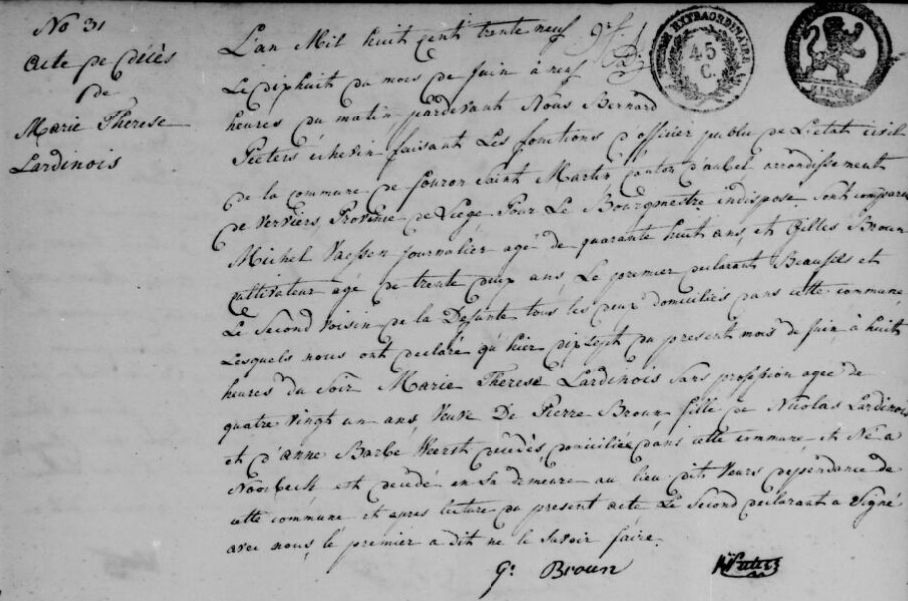 No 31
acte de décès
de
Marie Therese
Lardinois
L'an Mil huit Cent trente neuf
Le dixhuit du mois de Juin à neuf
heures du matin, pardevant Nous Bernard
Pieters échevin faisant Les fonctions d'officier public de L'état civil
de la commune de fouron Saint Martin canton d'aubel arrondissement
de Verviers, Province de Liége Pour Le Bourgmestre indisposé sont comparu
Michel Vaessen journalier agé de quarante huit ans, et Gilles Broun
cultivateur agé de trente deux ans, Le premier declarant Beaufils et
Le Second voisin de la Defunte tous les deux domiciliés dans cette commune
Lesquels nous ont declaré qu'hier dix sept du present mois de Juin à huit
heures du Soir Marie Therese Lardinois Sans profession agee de
quatre vingt un ans, Veuve De Pierre Broun, fille de Nicolas Lardinois
et d'anne Barbe décédés, domiciliée dans cette commune, et Né a
Noorbeek est décédé en Sa demeure au lieu dit Veurs dependance de
cette commune et apres lecture du present acte Le Second declarant a Signé
avec nous, le premier a dit ne le savoir faire.
Gs Broun
EXTRAORDINAIRE
45
C.